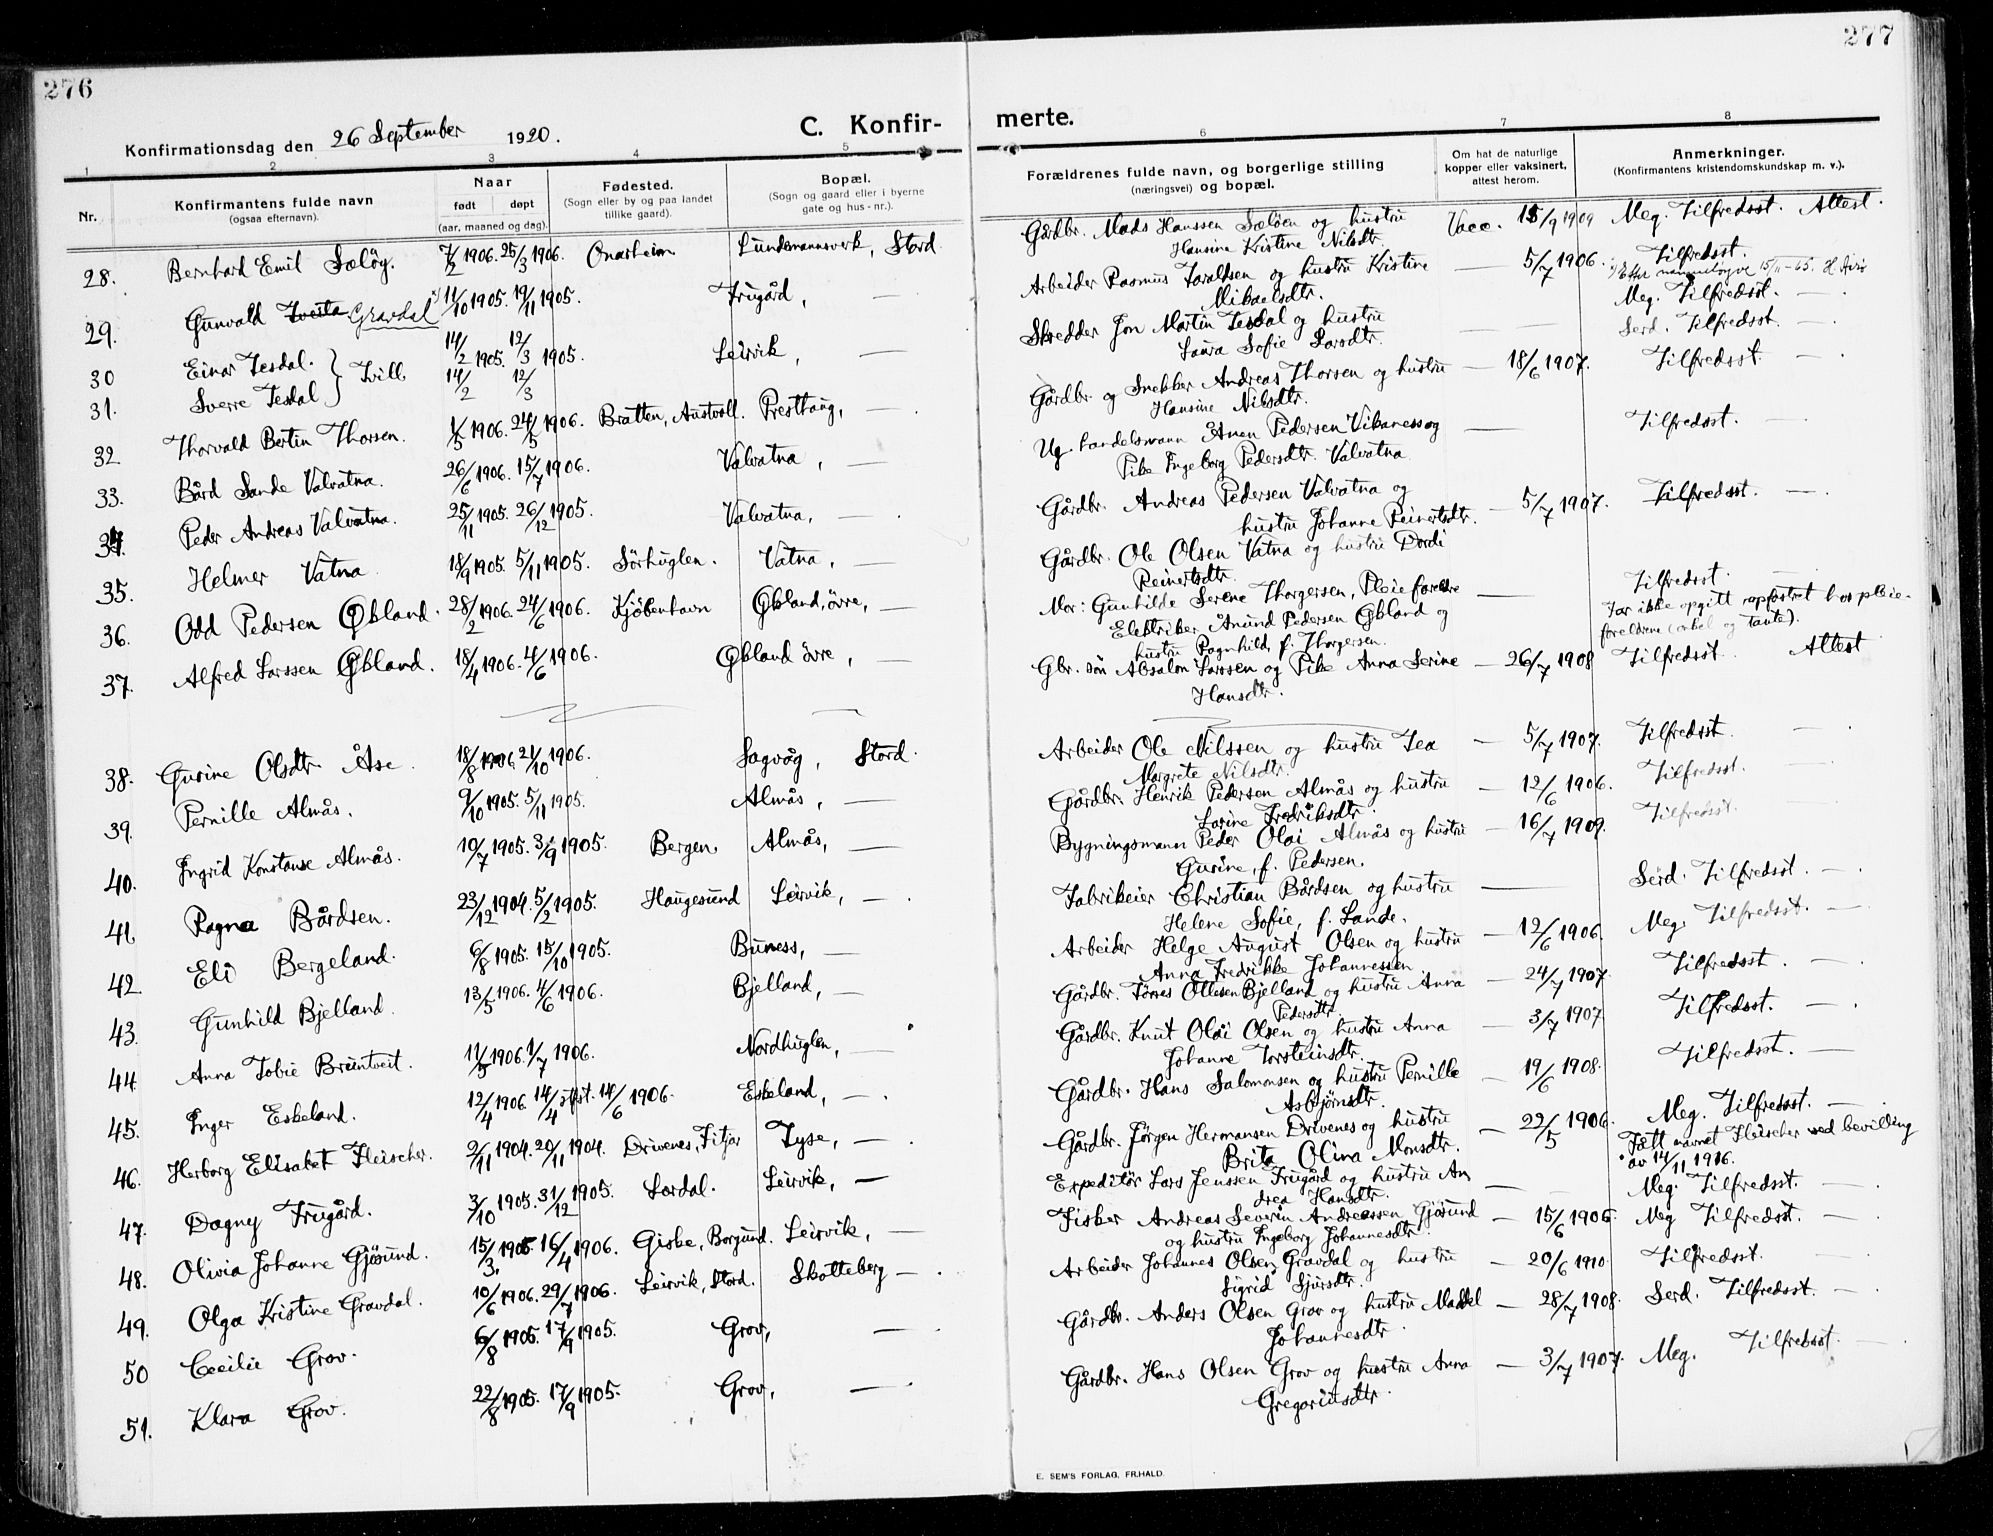 276
Konfirmationsdag den 26 September 1920.
C. Konfir-
1 2 3 4 5
Nr.
Konfirmantens fulde navn
(ogsaa efternavn).
Naar
født døpt
(aar, maaned og dag).
Fødested.
(Sogn eller by og paa landet
tillike gaard).
Bopæl.
(Sogn og gaard eller i byerne
gate og hus-nr.).
28. Bernhard Emil Sæløy. 7/2 1906. 25/3 1906. Onarheim Lundemannsverk, Stord
29. Gunvald Tveita Gravdal x) 11/10 1905. 19/11 1905. Frugård, —
30 Einar Tesdal. } Tvill. 14/2 1905. 12/3 1905. Leirvik, —
31. Sverre Tesdal 14/2 12/3
32 Thorvald Bertin Thorsen. 1/3 1906. 24/5 1906. Bratten, Austvoll. Presthaug, —
33. Bård Sande Valvatna. 26/6 1906. 15/7 1906. Valvatna, —
34. Peder Andreas Valvatna. 25/11 1905. 26/12 1905. Valvatna, —
35. Helmer Vatna 18/9 1905. 5/11 1905. Sörhuglen. Vatna, —
36. Odd Pedersen Økland. 28/2 1906. 24/6 1906. Kjöbenhavn Økland, övre, —
37. Alfred Larssen Økland. 18/4 1906. 4/6 1906. Økland övre, —
38. Gurine Olsdtr Åse 18/8 1906. 21/10 1906. Sagvåg, Stord.
39. Pernille Almås. 9/10 1905. 5/11 1905. Almås, —
40. Ingrid Konstanse Almås. 10/7 1905. 3/9 1905. Bergen. Almås, —
41. Ragna Bårdsen. 23/12 1904. 5/2 1905. Haugesund Leirvik, —
42. Eli Bergeland. 6/8 1905. 15/10 1905. Buness, —
43. Gunhild Bjelland. 13/5 1906. 4/6 1906. Bjelland, —
44 Anna Tobie Bruntveit. 11/5 1906. 1/7 1906. Nordhuglen, —
45. Inger Eskeland. 12/4 1906. 14/4 stfst. 14/6 1906. Eskeland, —
46. Herborg Elisabet Fleischer. 2/11 1904. 20/11 1904. Drivenes, Fitjar Tyse, —
47. Dagny Frugård. 3/10 1905. 31/12 1905. Lærdal. Leirvik, —
48. Olivia Johanne Gjösund. 15/3 1905 16/4 1906. Giske, Borgund. Leirvik, —
49. Olga Kristine Gravdal. 10/6 1906. 29/7 1906. Leirvik, Stord. Skotteberg —
50 Cecilie Grov. 6/8 1905. 17/9 1905. Grov, —
51. Klara Grov. 22/8 1905. 17/9 1905. Grov, —
277
merte.
6 7 8
Forældrenes fulde navn, og borgerlige stilling
(næringsvei) og bopæl.
Om hat de naturlige
kopper eller vaksinert,
attest herom.
Anmerkninger.
(Konfirmantens kristendomskundskap m. v.).
Gårdbr. Mads Hanssen Sæløen og hustru Vacc. 15/9 1909 Meg. Tilfredsst. Attest.
Hansine Kristine Nilsdtr.
Arbeider Rasmus Taraldsen og hustru Kristine — 5/7 1906. Tilfredsst.
Mikaelsdtr. x) Etter navnelov 15/11-65.
Skredder Jon Martin Tesdal og hustru — Meg. Tilfredsst. —
Laura Sofie Larsdtr. Serd. Tilfredsst. —
Gårdbr og Snekker Andreas Thorsen og hustru — 18/6 1907. Tilfredsst. —
Hansine Nilsdtr.
Ug. handelsmann Ånen Pedersen Vikaness og — Tilfredsst. —
Pike Ingeborg Pedersdtr. Valvatna
Gårdbr. Andreas Pedersen Valvatna og — 5/7 1907. Tilfredsst. —
hustru Johanne Reinertsdtr.
Gårdbr. Ole Olsen Vatna og hustru Dordi
Reinertsdtr. Tilfredsst. —
Mor: Gunhilde Serene Thorgersen, Pleieforeldre — Far ikke opgitt, opfostret hos pleie-
Elektriker Ånund Pedersen Økland og foreldrene (onkel og Tante).
hustru Ragnhild, f. Thorgersen.
Gbr. sön Absalon Larssen og Pike Anna Serine — 26/7 1908 Tilfredsst. Attest
Hansdtr.
Arbeider Ole Nilssen og hustru Tea — 5/7 1907. Tilfredsst —
Margrete Nilsdtr.
Gårdbr. Henrik Pedersen Almås og hustru — 12/6 1906. Tilfredsst. —
Larine Fredriksdtr.
Bygningsmann Peder Olai Almås og hustru — 16/7 1909. Tilfredsst. —
Gurine, f. Pedersen.
Fabrikeier Christian Bårdsen og hustru — Serd. Tilfredsst. —
Helene Sofie, f. Lande.
Arbeider Helge August Olsen og hustru — 12/6 1906. Meg. Tilfredsst. —
Anna Fredrikke Johannessen
Gårdbr. Torres Ottesen Bjelland og hustru Anna — 24/7 1907. Tilfredsst. —
Pedersdtr.
Gårdbr. Knut Olai Olsen og hustru Anna — 3/7 1907 Tilfredsst. —
Johanne Torsteinsdtr.
Gårdbr. Hans Salomonsen og hustru Pernille — 19/6 1908. Tilfredsst. —
Asbjørnsdtr.
Gårdbr. Jørgen Hermansen Drivenes og hustru — 22/5 1906. Meg. Tilfredsst. —
Brita Olina Monsdtr. Fått navnet Fleischer ved bevilling
av 14/11 1916.
Expeditör Lars Jenssen Frugård og hustru An — Meg. Tilfredsst. —
drea Hansdtr.
Fisker Andreas Severin Andreassen Gjösund — 15/6 1906. Meg Tilfredsst. —
og hustru Ingeborg Johannesdtr.
Arbeider Johannes Olsen Gravdal og hustru — 20/6 1910. Tilfredsst. —
Sigrid Sjursdtr.
Gårdbr. Anders Olsen Grov og hustru Maddel — 28/7 1908. Serd. Tilfredsst. —
Johannesdtr.
Gårdbr. Hans Olsen Grov og hustru Anna — 3/7 1907. Meg. Tilfredsst. —
Gregoriusdtr.
E. SEM'S FORLAG, FR.HALD.